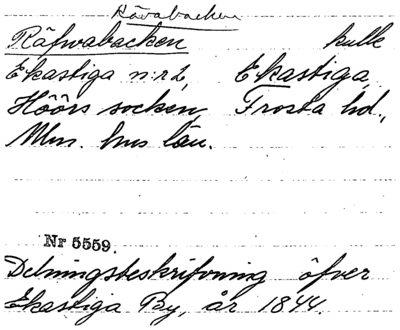 Rävabacken
Räfwabacken kulle
Ekastiga n:r 2, Ekastiga,
Höörs socken, Frosta hd.,
Mlm. hus län.
Nr 5559.
Delningsbeskrifvning öfver
Ekastiga By, år 1844.